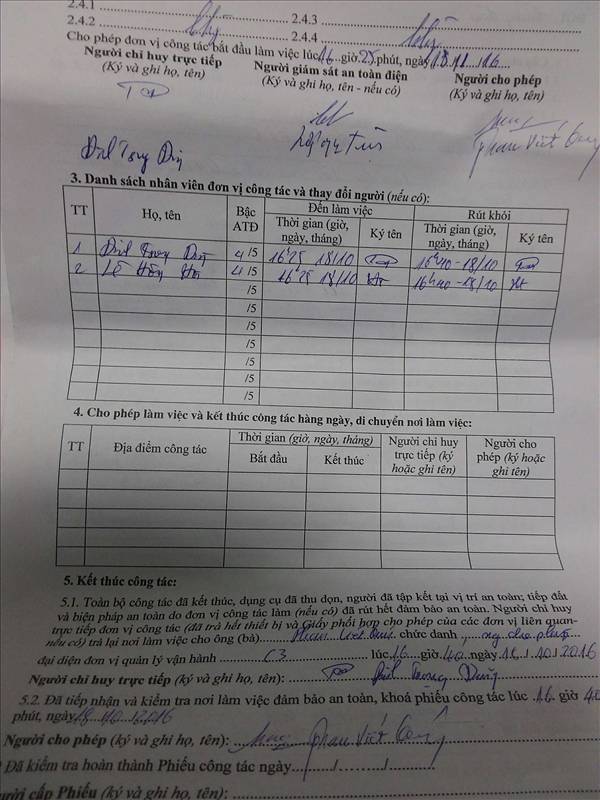 2.4.1 ........ 2.4.3 ........
2.4.2 ........ 2.4.4 ........
Cho phép đơn vị công tác bắt đầu làm việc lúc 16 giờ 25 phút, ngày
Người chỉ huy trực tiếp Người giám sát an toàn điện Người cho phép
(Ký và ghi họ, tên) (Ký và ghi họ, tên - nếu có) (Ký và ghi họ, tên)
Phan Viết
3. Danh sách nhân viên đơn vị công tác và thay đổi người (nếu có):
TT Họ, tên Bậc ATĐ Đến làm việc Rút khỏi
Thời gian (giờ, ngày, tháng) Ký tên Thời gian (giờ, ngày, tháng) Ký tên
1 4/5 16h25 18/10 16h40-18/10
2 Lê 4/5 16h25 18/10 16h40-18/10
/5
/5
/5
/5
/5
/5
/5
4. Cho phép làm việc và kết thúc công tác hàng ngày, di chuyển nơi làm việc:
TT Địa điểm công tác Thời gian (giờ, ngày, tháng) Người chỉ huy trực tiếp (ký hoặc ghi tên) Người cho phép (ký hoặc ghi tên)
Bắt đầu Kết thúc
5. Kết thúc công tác:
5.1. Toàn bộ công tác đã kết thúc, dụng cụ đã thu dọn, người đã tập kết tại vị trí an toàn; tiếp đất
và biện pháp an toàn do đơn vị công tác làm (nếu có) đã rút hết đảm bảo an toàn. Người chỉ huy
trực tiếp đơn vị công tác (đã trả hết thiết bị và Giấy phối hợp cho phép của các đơn vị liên quan-
nếu có) trả lại nơi làm việc cho ông (bà) Phan Viết chức danh ng cho phép
đại diện đơn vị quản lý vận hành C3 lúc 16 giờ 40 ngày / 10 / 2016
Người chỉ huy trực tiếp (ký và ghi họ, tên):
5.2. Đã tiếp nhận và kiểm tra nơi làm việc đảm bảo an toàn, khoá phiếu công tác lúc 16 giờ 40
phút, ngày 18/10/2016
Người cho phép (ký và ghi họ, tên): Phan Viết
Đã kiểm tra hoàn thành Phiếu công tác ngày ...../...../.....
cấp Phiếu (ký và ghi họ, tên):